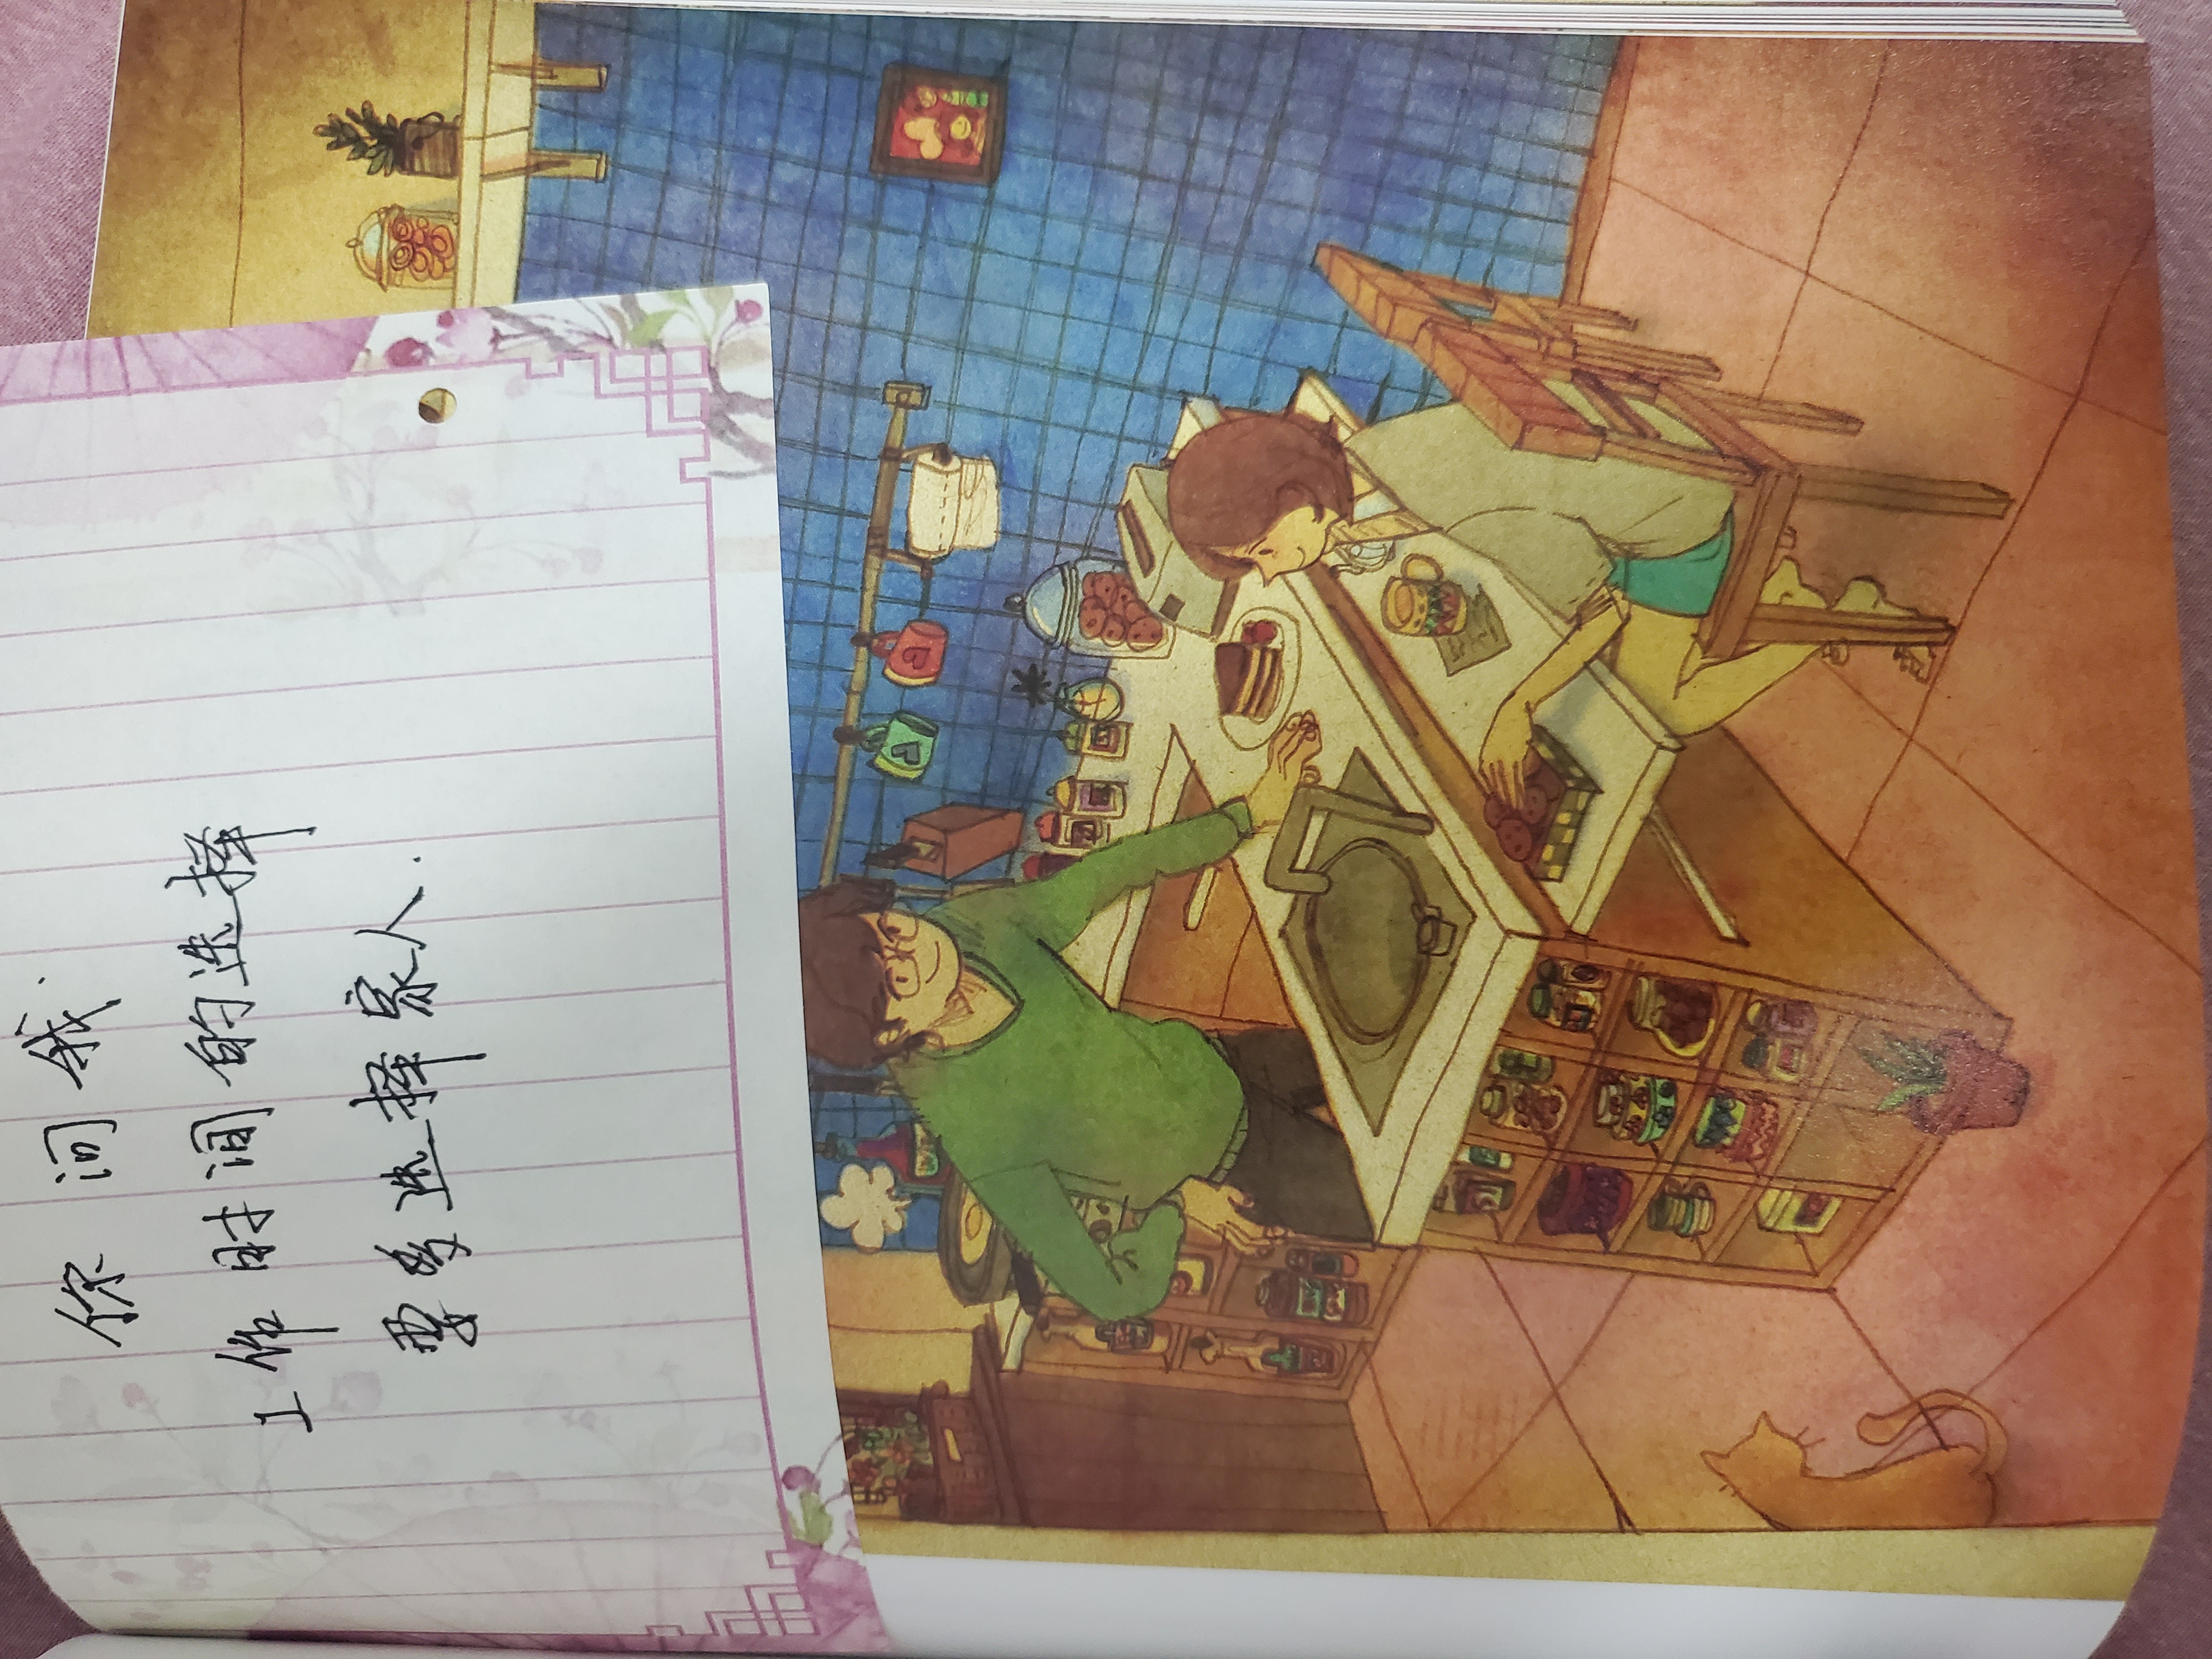 你问我.
工作时间的选择
要多选择家人.